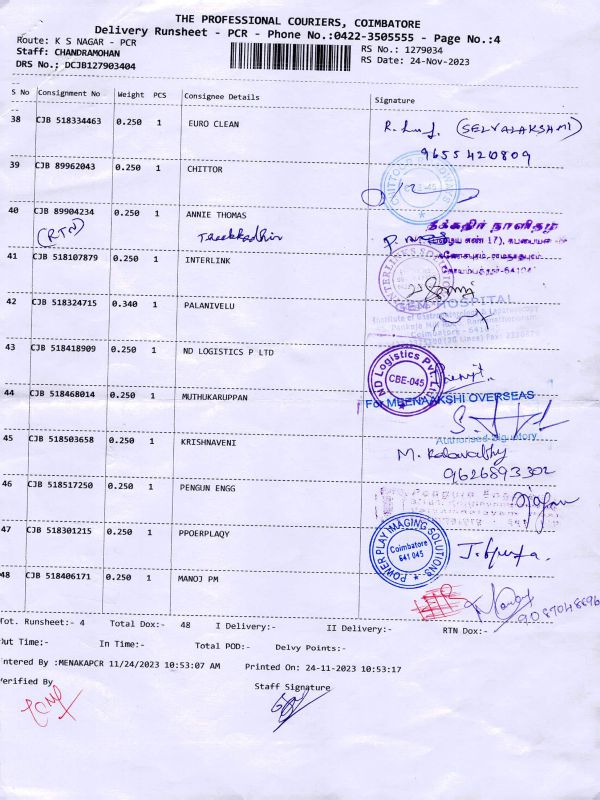 THE PROFESSIONAL COURIERS, COIMBATORE
Delivery Runsheet - PCR - Phone No.:0422-3505555 - Page No.:4
Route: K S NAGAR - PCR
RS No.: 1279034
Staff: CHANDRAMOHAN
RS Date: 24-Nov-2023
DRS No.; DCJB127903404
S No Consignment No Weight PCS Consignee Details Signature
38 CJB 518334463 0.250 1 EURO CLEAN
(SELVALAKSHMI)
9655420809
39 CJB 89962043 0.250 1 CHITTOR
40 CJB 89904234 0.250 1 ANNIE THOMAS
(RTN) Theekkadhir
தீக்கதிர் நாளிதழ்
41 CJB 518107879 0.250 1 INTERLINK
42 CJB 518324715 0.340 1 PALANIVELU
GEM HOSPITAL
Coimbatore
43 CJB 518418909 0.250 1 ND LOGISTICS P LTD
ND Logistics Pvt. Ltd
CBE-045
44 CJB 518468014 0.250 1 MUTHUKARUPPAN
For MEENAAKSHI OVERSEAS
Authorised Signatory
45 CJB 518503658 0.250 1 KRISHNAVENI
M. Kalavathy
9626893302
46 CJB 518517250 0.250 1 PENGUN ENGG
47 CJB 518301215 0.250 1 PPOERPLAQY
POWER PLAY IMAGING SOLUTIONS
Coimbatore
641 045
48 CJB 518406171 0.250 1 MANOJ PM
Tot. Runsheet:- 4 Total Dox:- 48 I Delivery:- II Delivery:- RTN Dox:-
Out Time:- In Time:- Total POD:- Delvy Points:-
ntered By :MENAKAPCR 11/24/2023 10:53:07 AM Printed On: 24-11-2023 10:53:17
Verified By Staff Signature